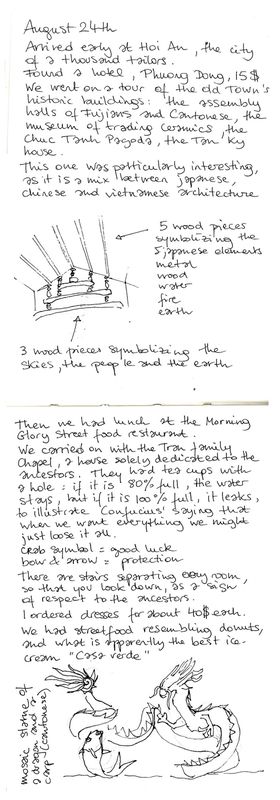 August 24th
Arrived early at Hoi An, the city
of a thousand tailors.
Found a hotel, Phuong Dong, 15$
We went on a tour of the old Town's
historic buildings: the assembly
halls of Fujians and Cantonese, the
museum of trading ceramics, the
Chuc Tanh Pagoda, the Tan Ky
house.
This one was particularly interesting,
as it is a mix between japanese,
chinese and vietnamese architecture
5 wood pieces
symbolizing the
5 japanese elements
metal
wood
water
fire
earth
3 wood pieces symbolizing the
skies, the people and the earth
Then we had lunch at the Morning
Glory Street food restaurant.
We carried on with the Tran family
Chapel, a house solely dedicated to the
ancestors. They had tea cups with
a hole: if it is 80% full, the water
stays, but if it is 100% full, it leaks,
to illustrate Confucius' saying that
when we want everything we might
just loose it all.
crab symbol = good luck
bow & arrow = protection
There are stairs separating every room,
so that you look down, as a sign
of respect to the ancestors.
I ordered dresses for about 40$ each.
We had streetfood resembling donuts,
and what is apparently the best ice-
cream "Casa verde"
mosaic statue of
a dragon and a
carp (cantonese)